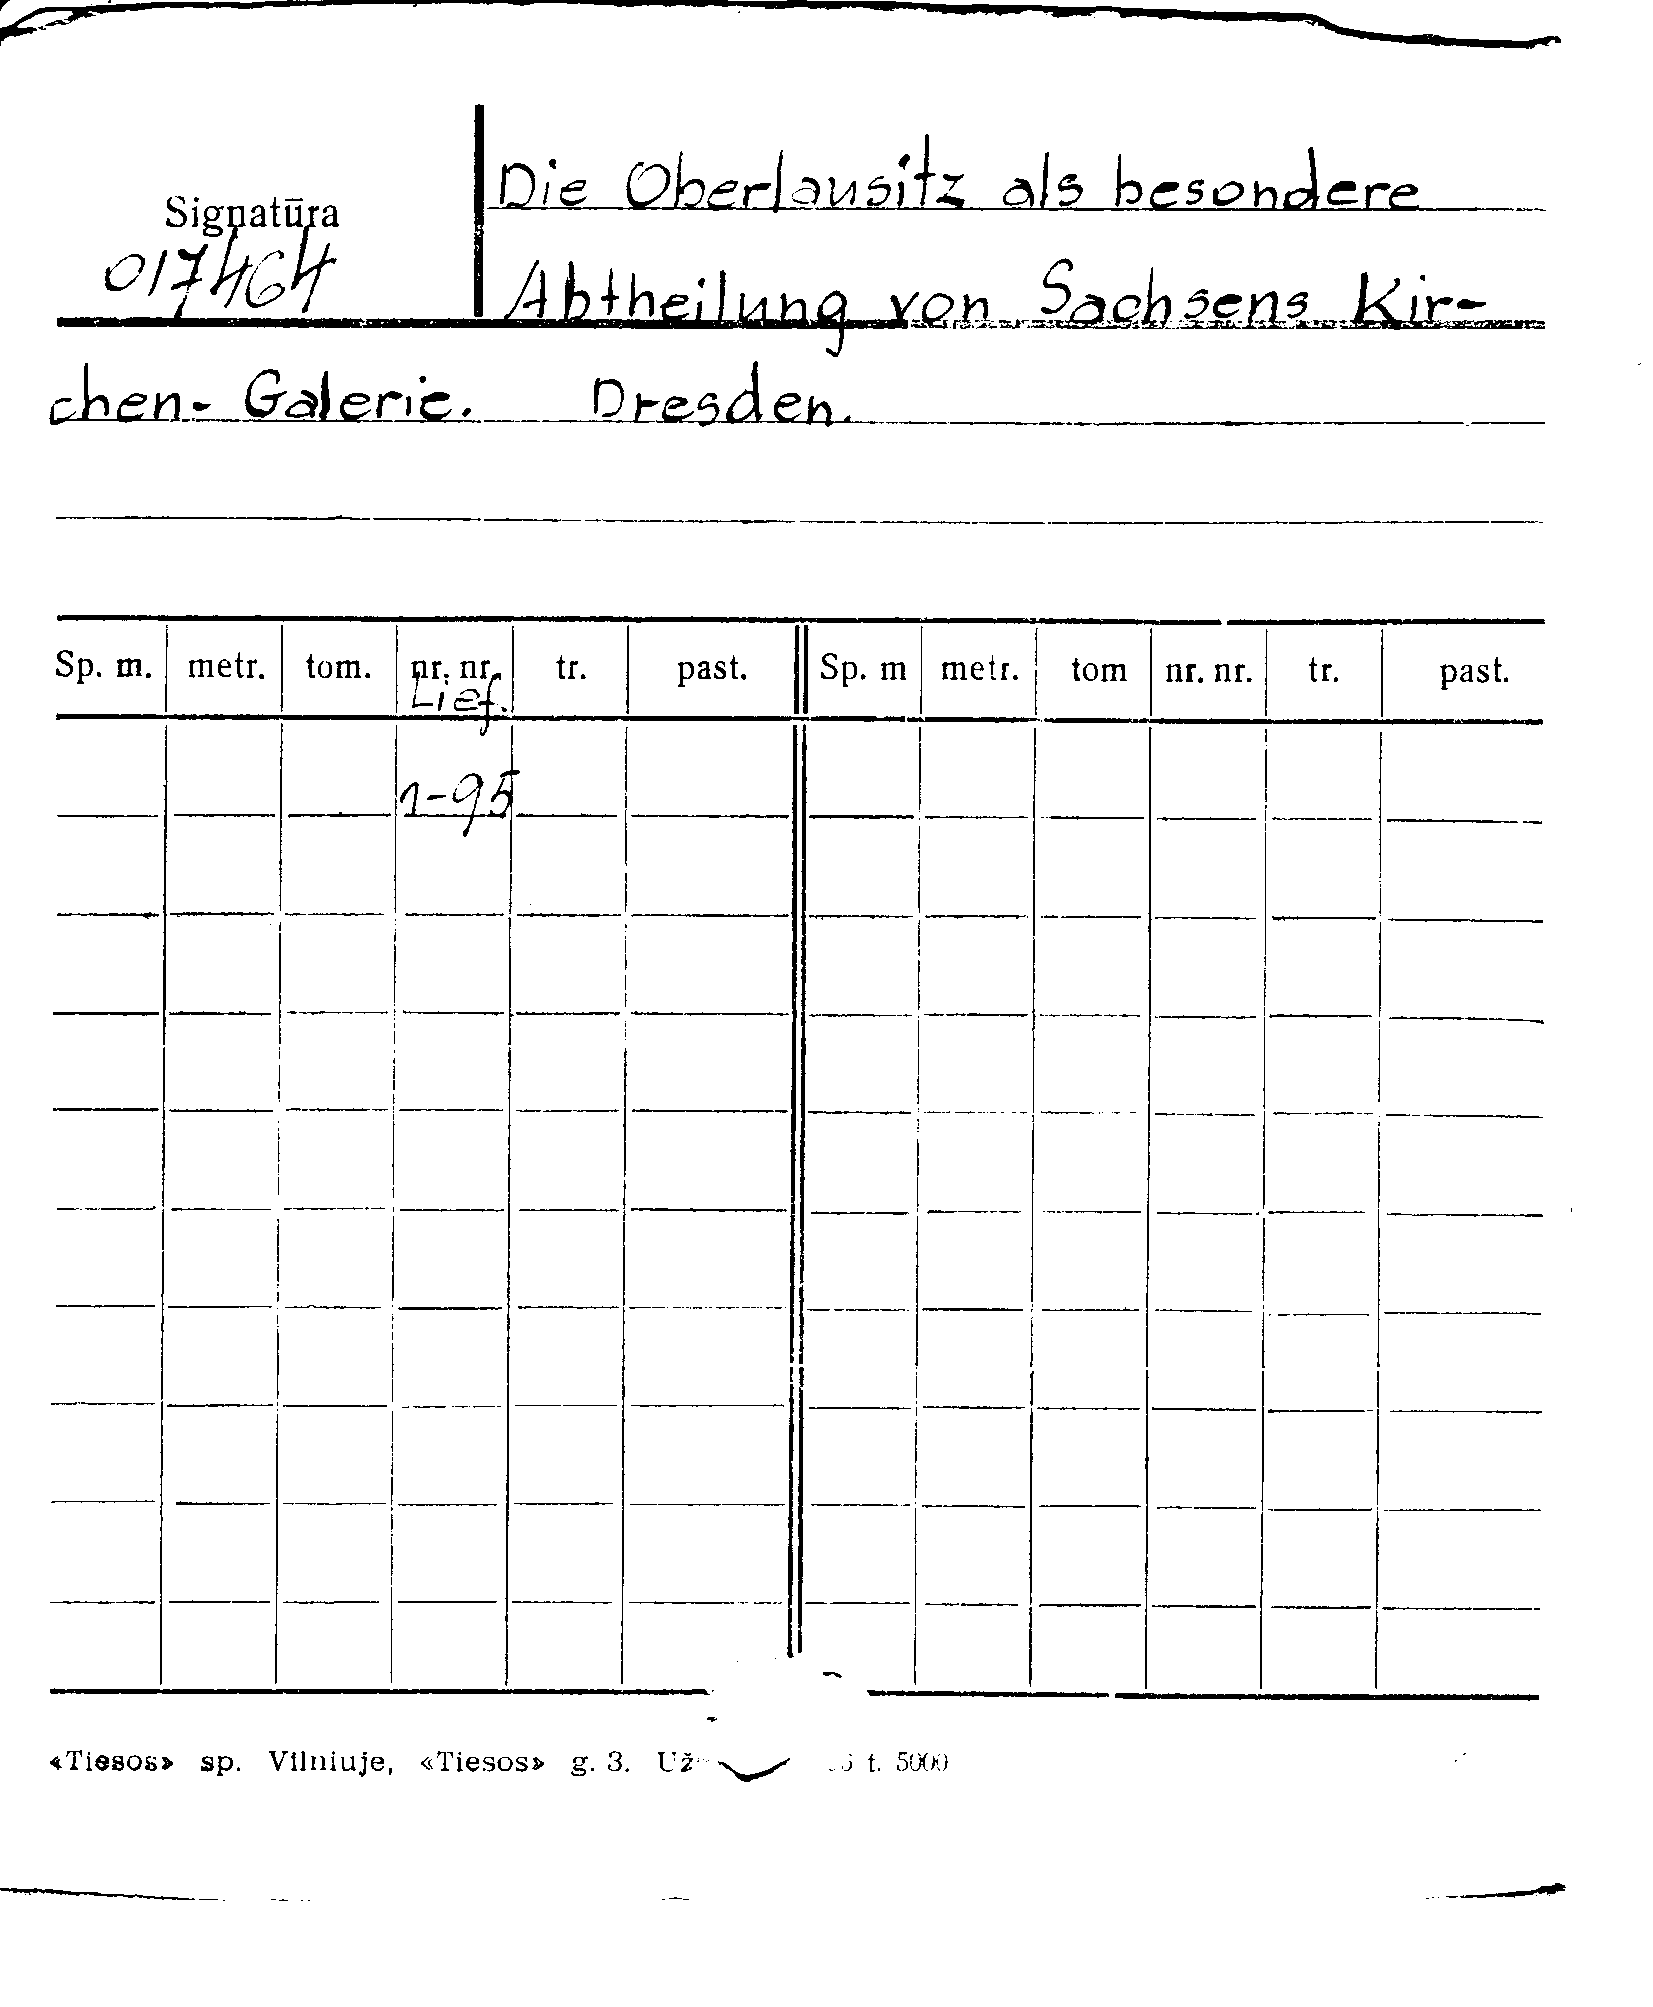 Signatūra
017464
Die Oberlausitz als besondere
Abtheilung von Sachsens Kir-
chen- Galerie. Dresden.
Sp. m. metr. tom. nr. nr. tr. past. Sp. m metr. tom nr. nr. tr. past.
Lief.
1-95
«Tiesos» sp. Vilniuje, «Tiesos» g. 3. Už t. 5000